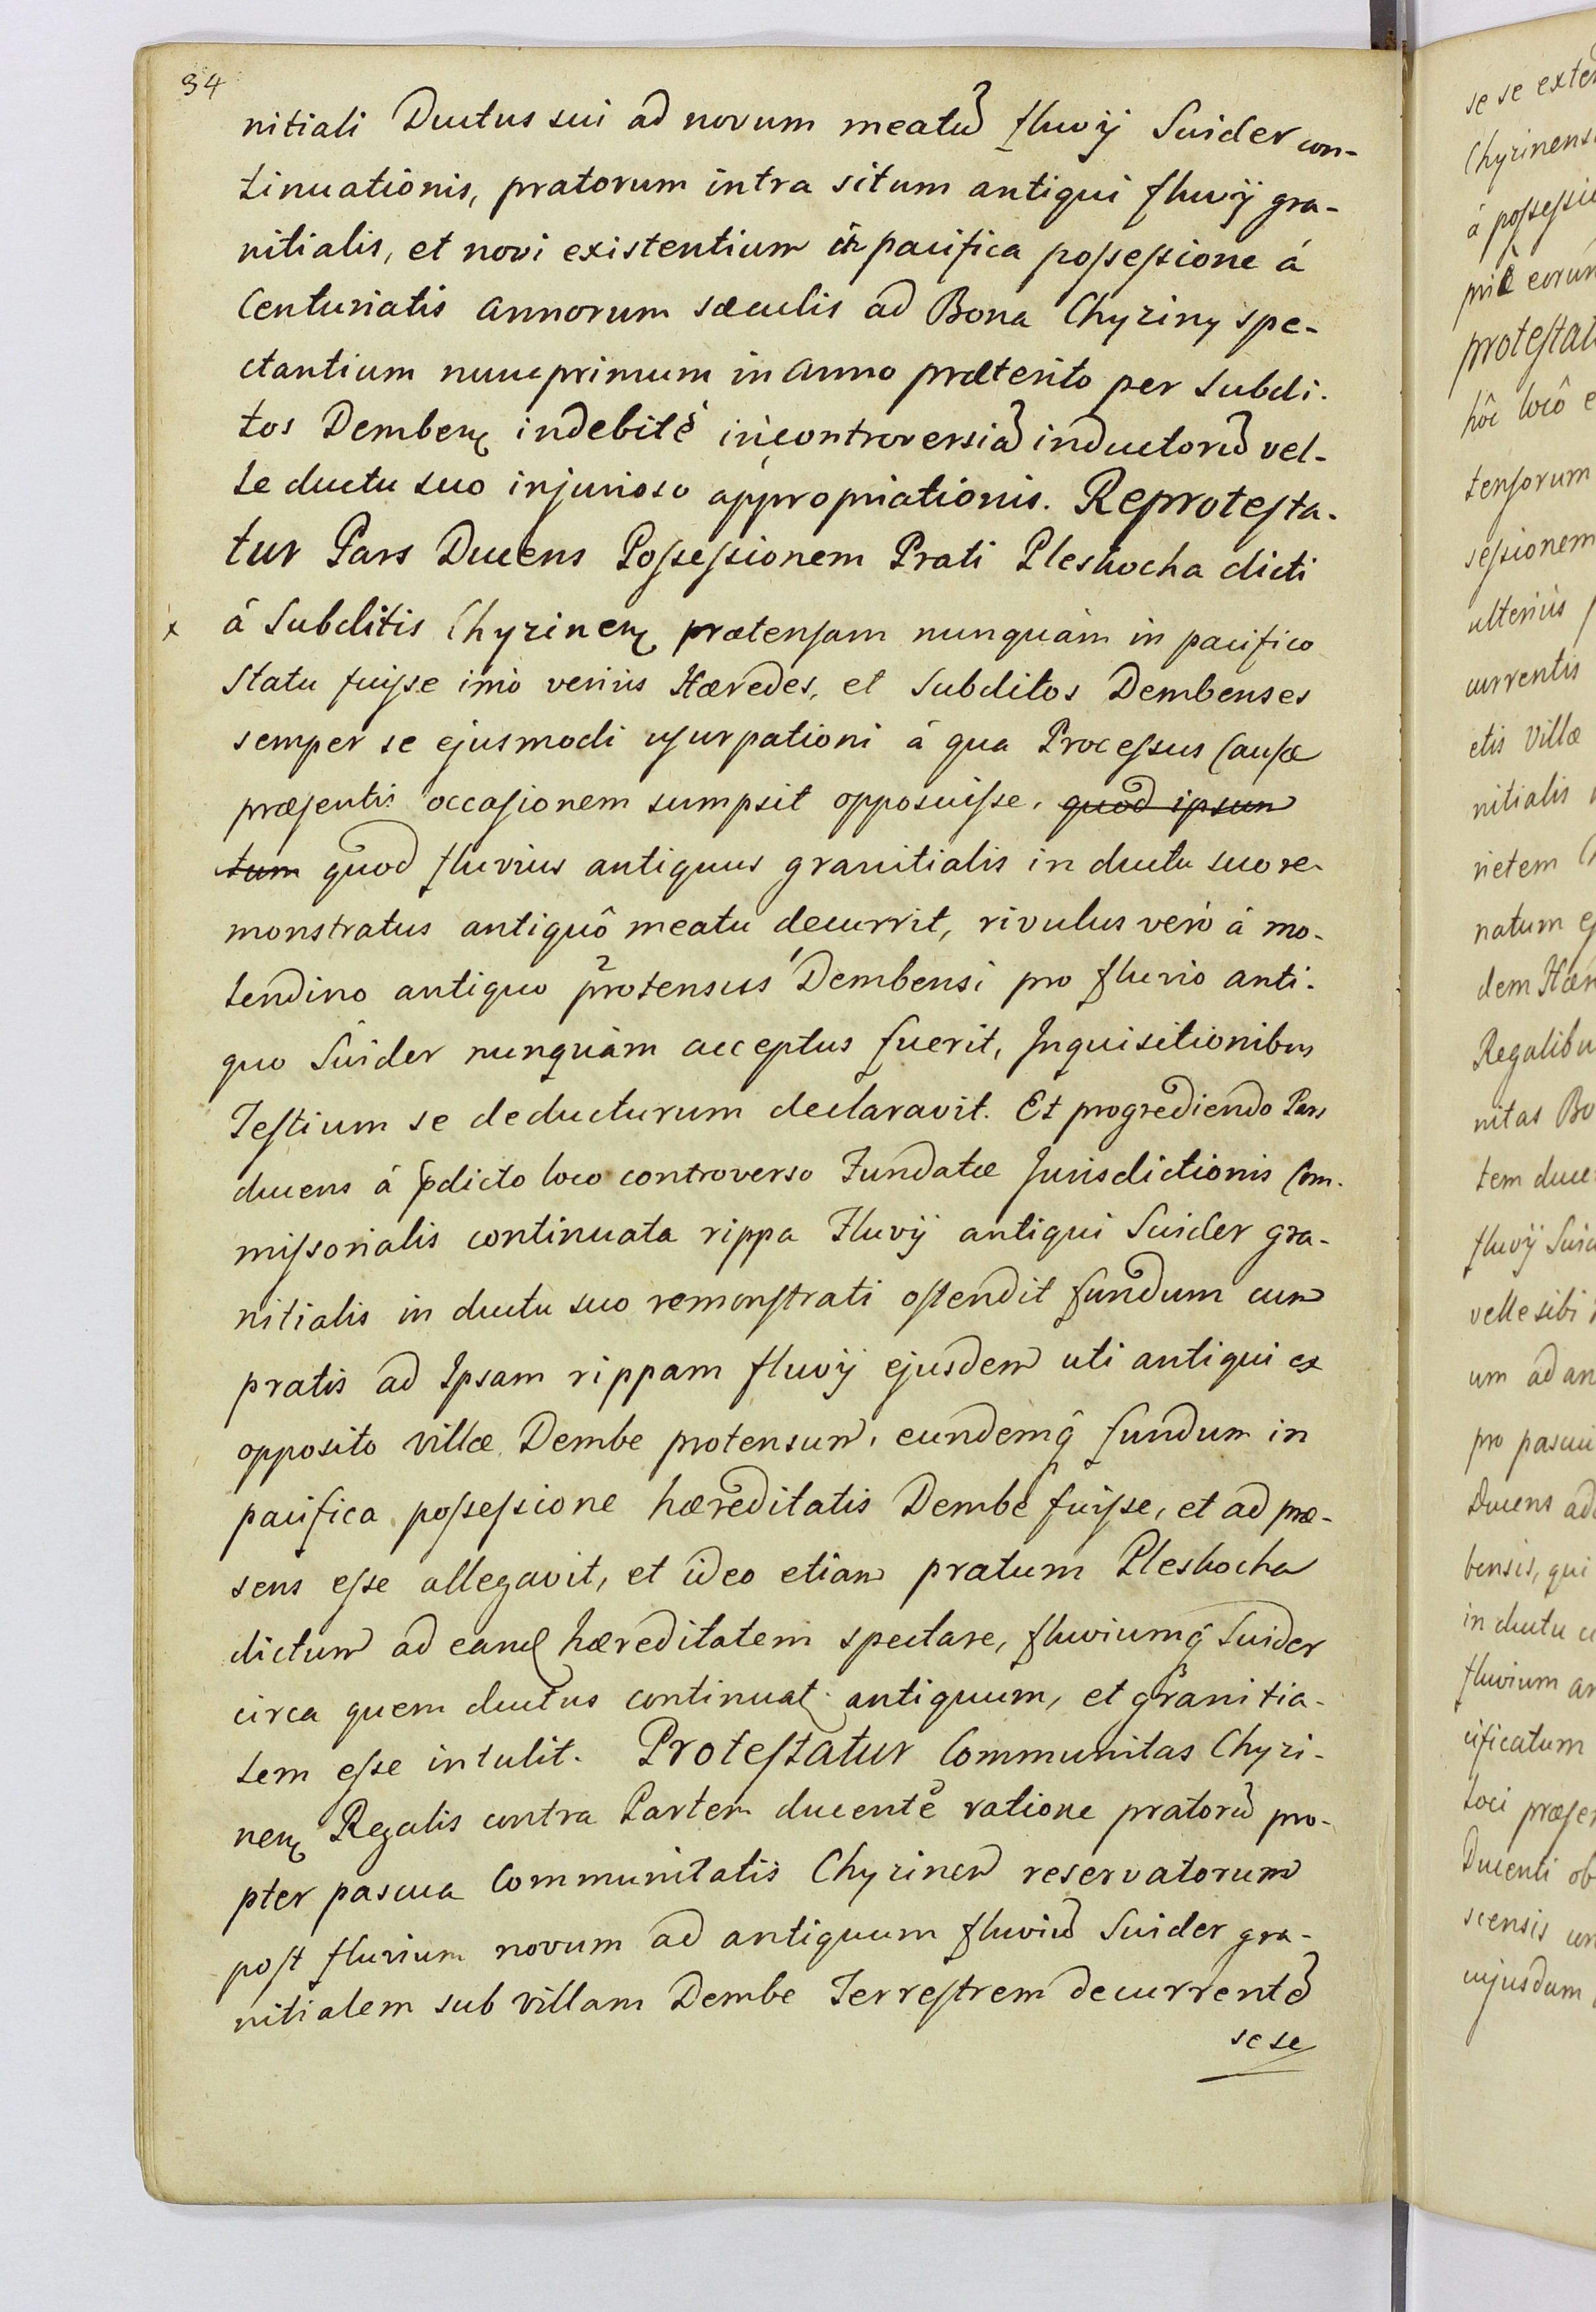 34
nitiali Ductus sui ad novum meatũ fluvÿ Suider con-
tinuationis, pratorum intra situm antiqui fluvÿ gra-
nitialis, et novi existentium in pacifica poſseſsione á
Centuriatis annorum sæculis ad Bona Chyziny spe-
ctantium nunc primum in Anno præterito per Subdi-
tos Demben͂ indebitè in controversiã inductorũ vel-
le ductu suo injurioso appropriationis. Reproteſta-
tur Pars Ducens Poſseſsionem Prati Pleskocha dicti
x á Subditis Chyzinen͂ prætenſam nunquàm in pacifico
Statu fuiſse imò veriùs Hæredes, et Subditos Dembenses
semper se ejusmodi uſurpationi á qua Proceſsus Cauſæ
præſentis occaſionem sumpsit opposuiſse, quod ipsum
tum quod fluvius antiquus granitialis in ductu suo re-
monstratus antiquô meatu decurrit, rivulus verò á mo-
lendino antiquo protensus Dembensi pro fluvio anti-
quo Suider nunquàm acceptus fuerit, Inquisitionibus
Teſtium se deducturum declaravit. Et progrediendo Pars
ducens á p̃dicto loco controverso Fundatæ Jurisdictionis Com-
miſsorialis continuata rippa Fluvÿ antiqui Suider gra-
nitialis in ductu suo remonſtrati oſtendit fundum cum
pratis ad Ipsam rippam fluvÿ ejusdem uti antiqui ex
opposito villæ Dembe protensum, eundemq̃ fundum in
pacifica poſseſsione hæreditatis Dembe fuiſse, et ad præ-
sens eſse allegavit, et ideo etiam pratum Pleskocha
dictum ad eand hæreditatem spectare, fluviumq̃ Suider
circa quem ductus continuat antiquum, et granitia-
lem eſse intulit. Proteſtatur Communitas Chyzi-
nen͂ Regalis contra Partem ducentẽ ratione pratorũ pro-
pter pascua Communitatis Chyzinen reservatorum
poſt fluvium novum ad antiquum fluviũ Suider gra-
nitialem sub villam Dembe Terreſtrem decurrentẽ
se se
se se exten
Chyzinens
á poſseſsio
eorum
proteſtat
hôc locô e
tenſorum
seſsionem
ulteriùs
currentis
etis Villæ
nitialis
rietem
natum
dem Hær
Regalibu
nitas Bo
tem duce
fluvÿ Suid
velle sibi
um ad an
pro pascui
Ducens ad
bensis, qui
in ductu
fluvium an
cificatum
loci præſen
Ducenti ob
scensis con
cujusdam